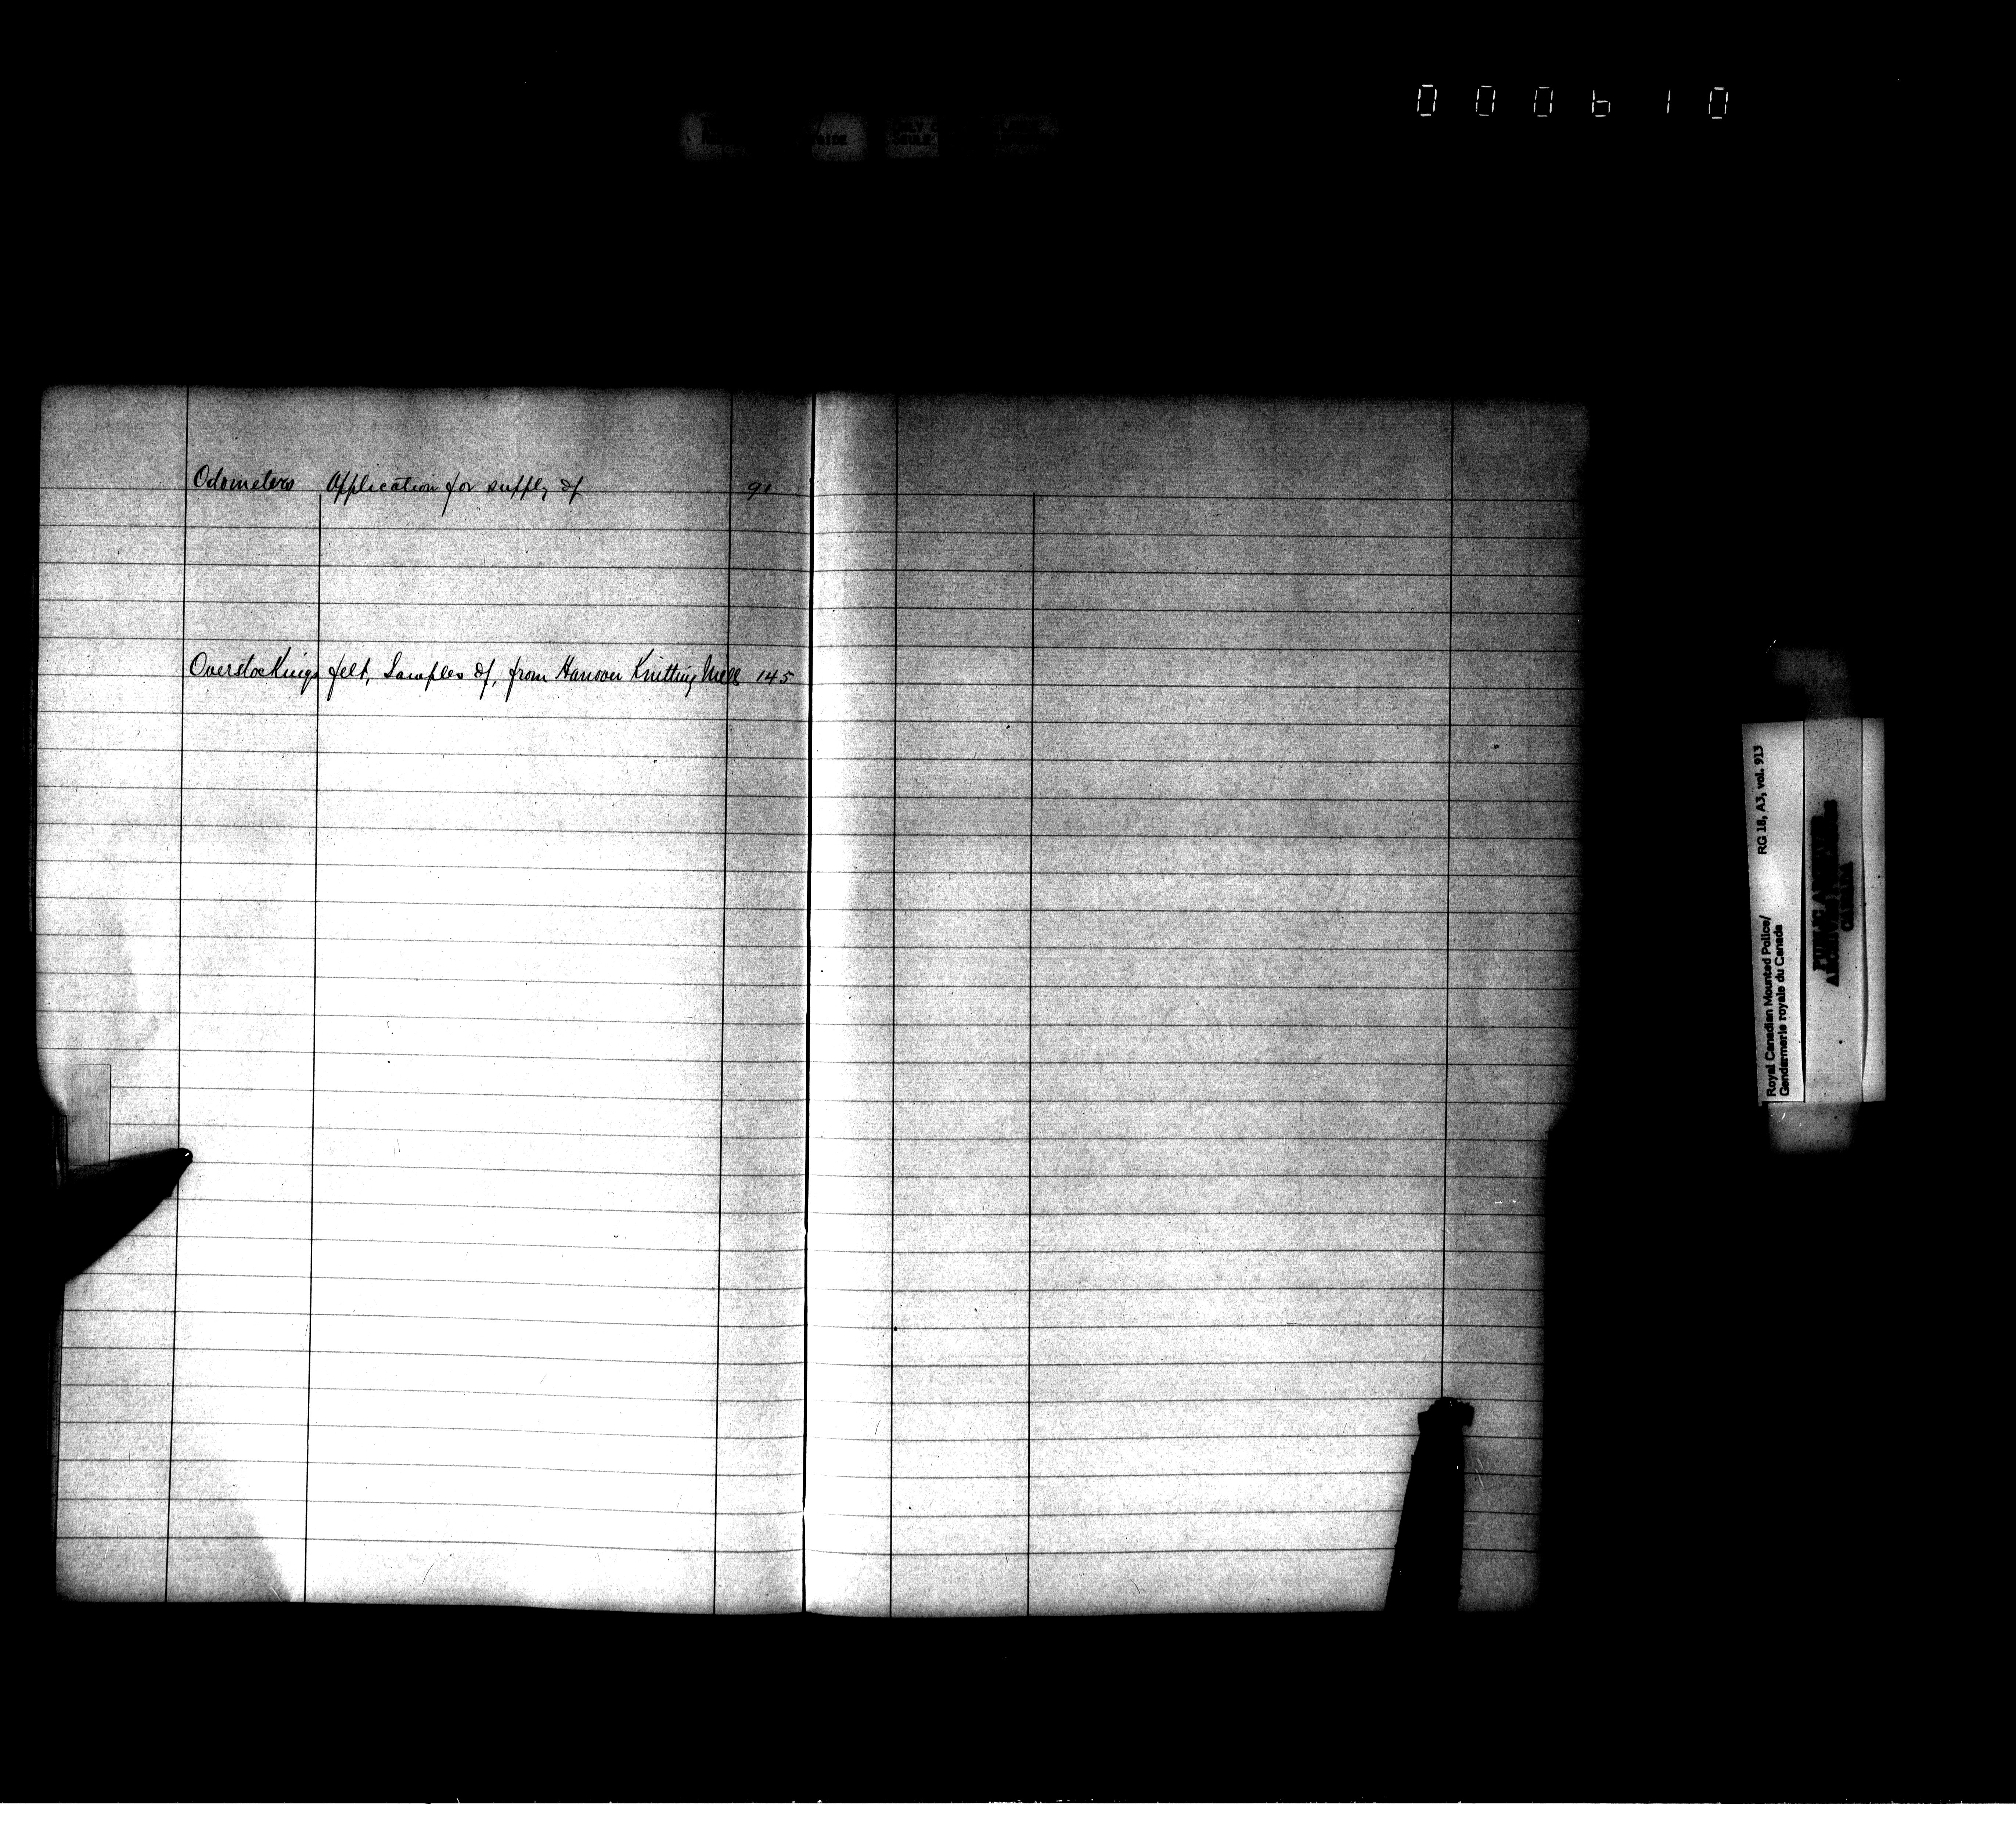 000610
Odometers Application for supply of 91
Overstockings felt, Samples of, from Hanover Knitting Mills 145
Royal Canadian Mounted Police/
Gendarmerie royale du Canada
RG 18, A3, vol. 913
PUBLIC ARCHIVES
ARCHIVES PUBLIQUES
CANADA